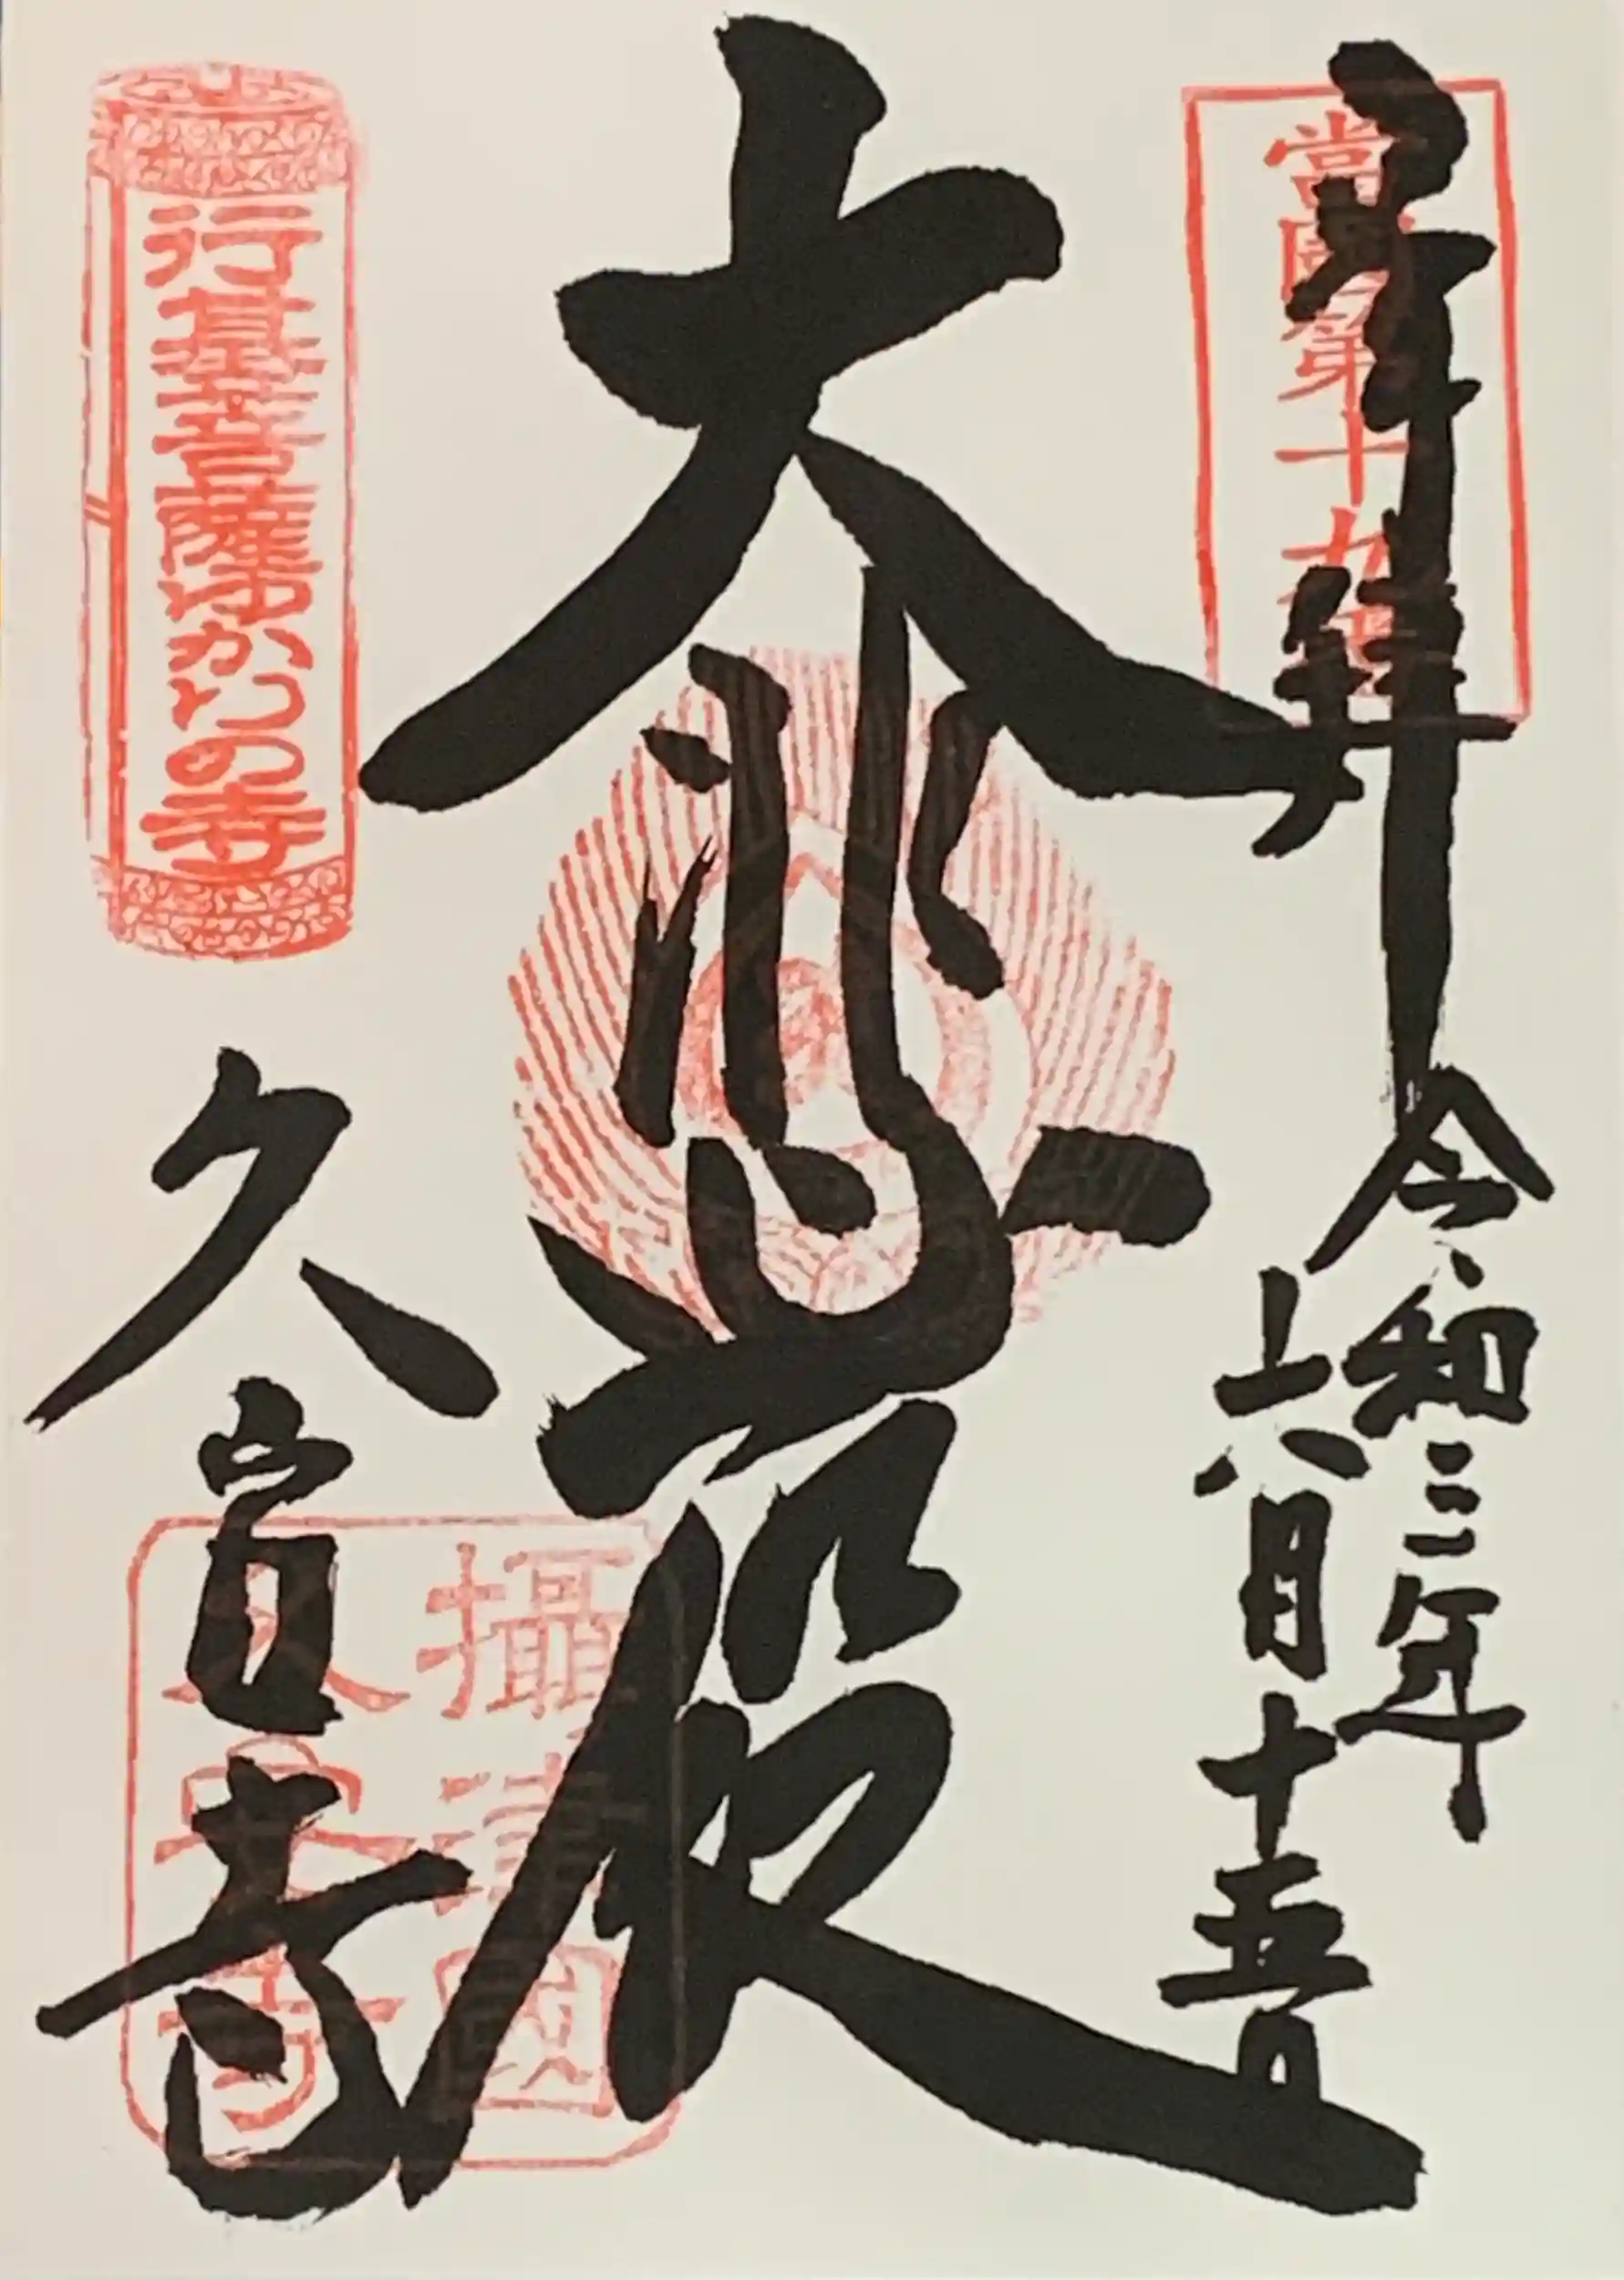 當國第十九番
奉拝
令和三年
六月十五日
大悲殿
行基菩薩ゆかりの寺
久安寺
攝津國
久安寺